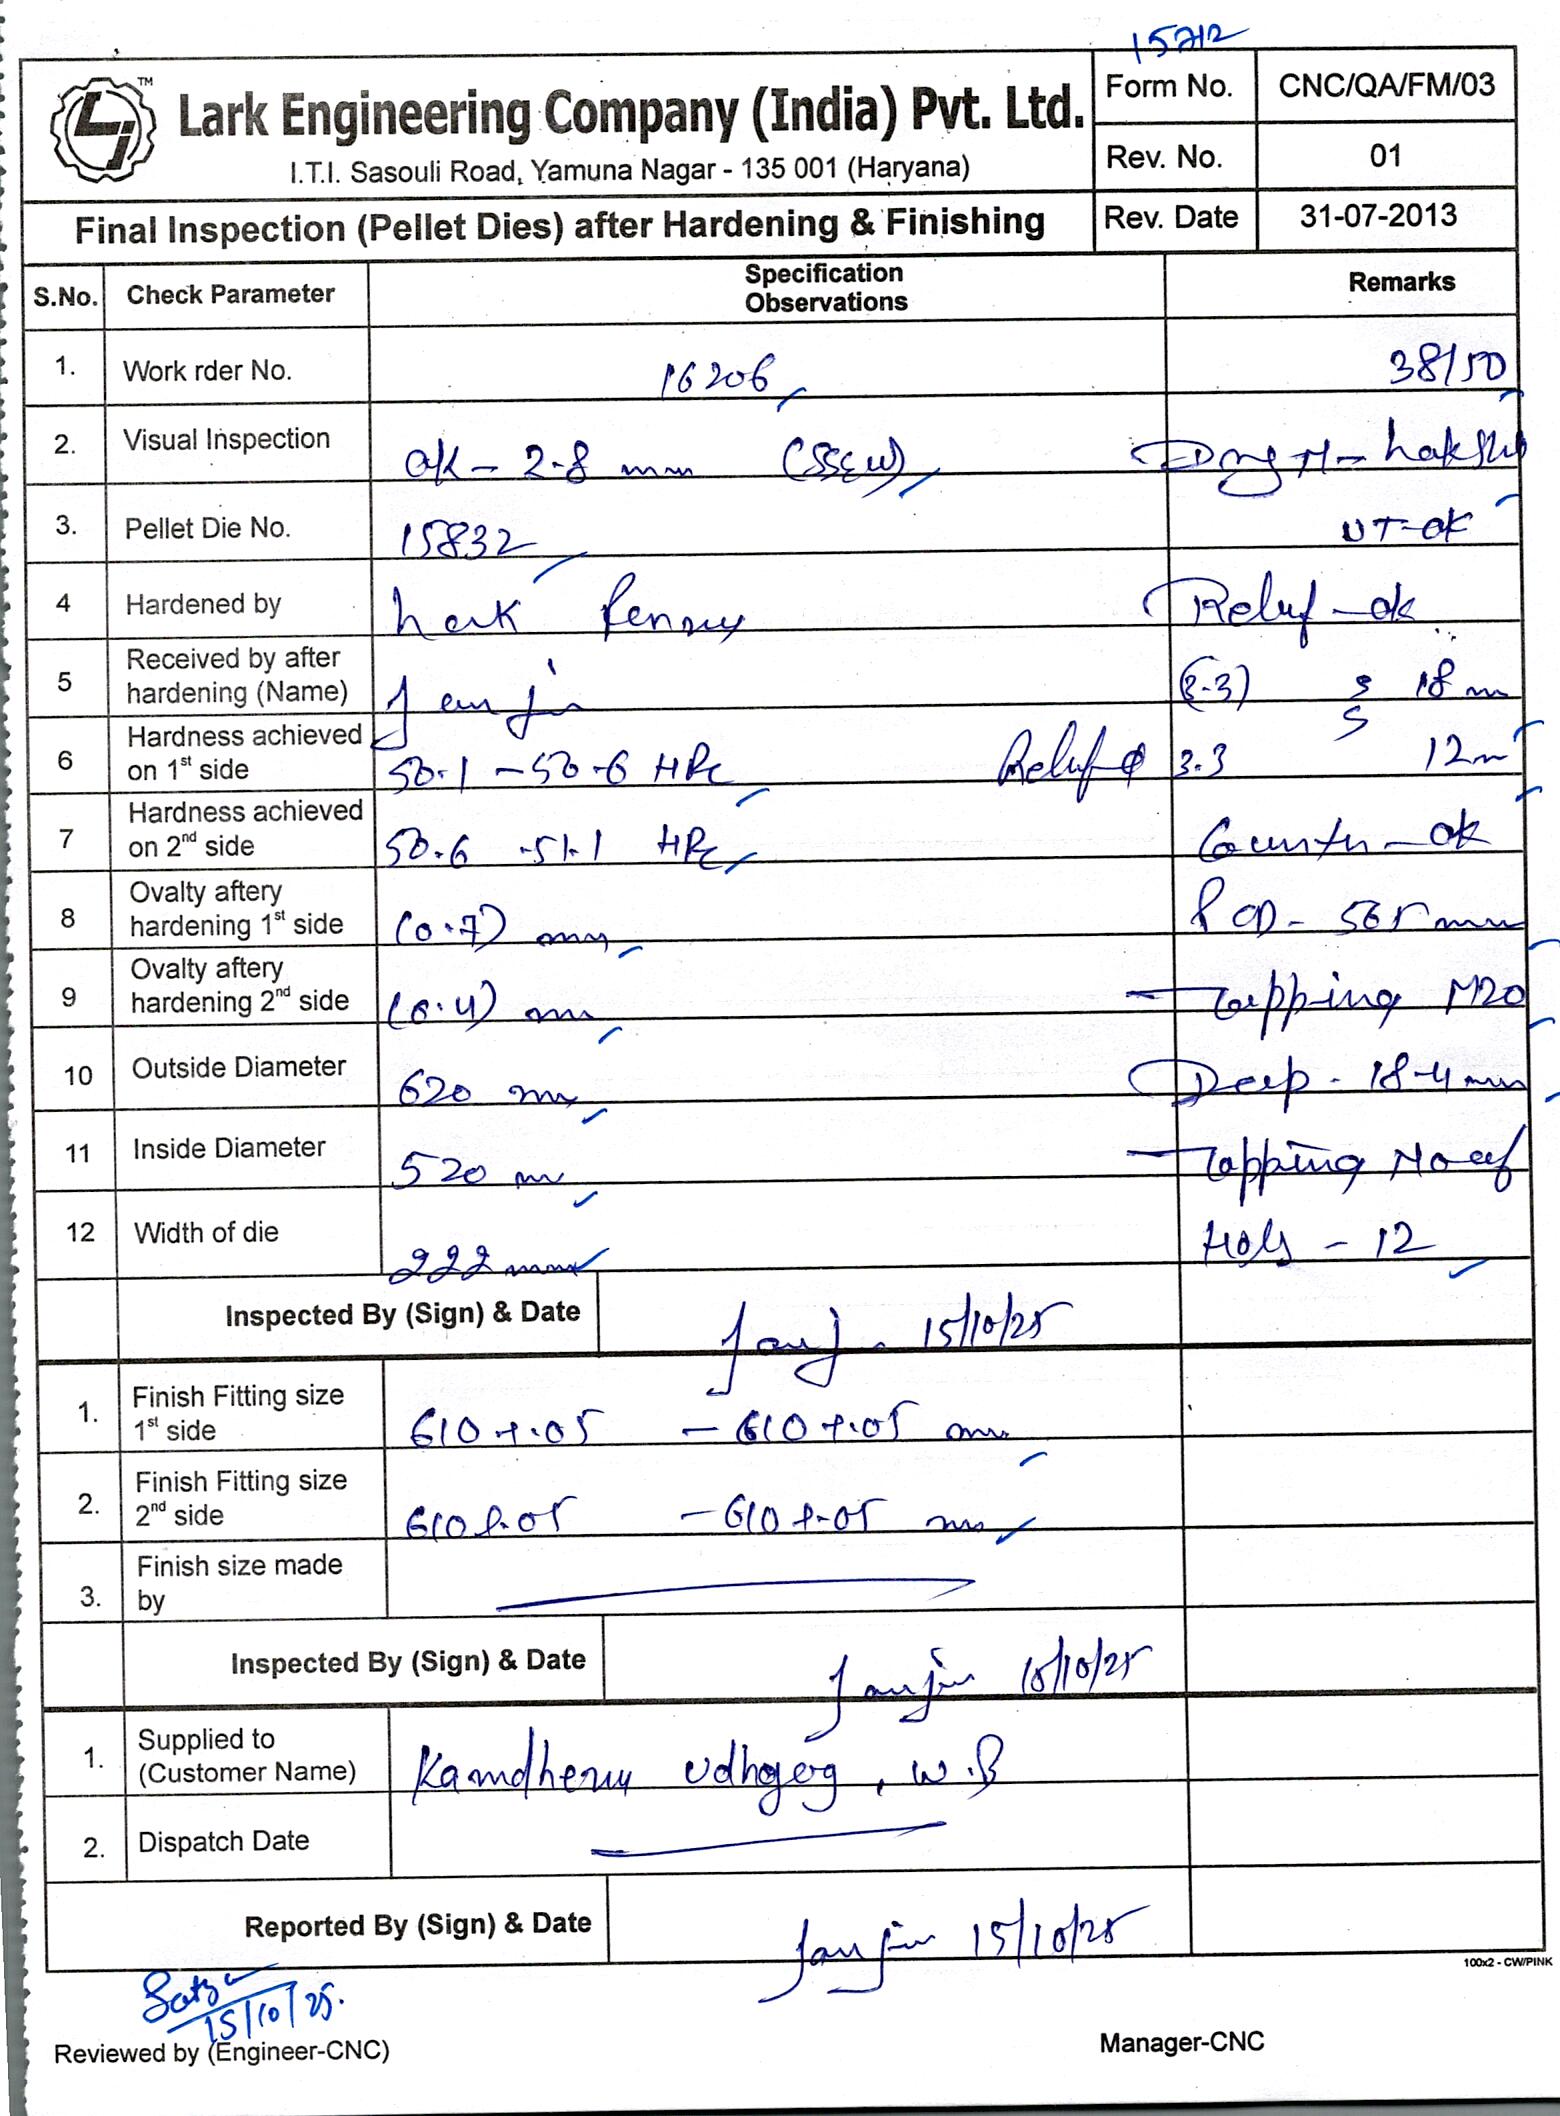 15212
TM
Lark Engineering Company (India) Pvt. Ltd.
I.T.I. Sasouli Road, Yamuna Nagar - 135 001 (Haryana)
Form No. CNC/QA/FM/03
Rev. No. 01
Final Inspection (Pellet Dies) after Hardening & Finishing
Rev. Date 31-07-2013
S.No. Check Parameter Specification Observations Remarks
1. Work rder No. 16206 38/50
2. Visual Inspection OK - 2.8 mm
3. Pellet Die No. 15832 UT-ok
4 Hardened by Relief - ok
5 Received by after hardening (Name) (3.3) 18 m
6 Hardness achieved on 1st side 50.1 - 50.6 HRc Relief φ 3.3 12m
7 Hardness achieved on 2nd side 50.6 - 51.1 HRc Counter - ok
8 Ovalty aftery hardening 1st side (0.7) mm PCD - 565 mm
9 Ovalty aftery hardening 2nd side (0.4) mm Tapping M20
10 Outside Diameter 620 mm Deep - 18.4 mm
11 Inside Diameter 520 mm Tapping No of
12 Width of die 222 mm Hols - 12
Inspected By (Sign) & Date 15/10/25
1. Finish Fitting size 1st side 610 +.05 - 610 +.05 mm
2. Finish Fitting size 2nd side 610 +.05 - 610 +.05 mm
3. Finish size made by
Inspected By (Sign) & Date 15/10/25
1. Supplied to (Customer Name) Kamdhenu Udhgog, W.B
2. Dispatch Date
Reported By (Sign) & Date 15/10/25
100x2 - CW/PINK
15/10/25.
Reviewed by (Engineer-CNC)
Manager-CNC